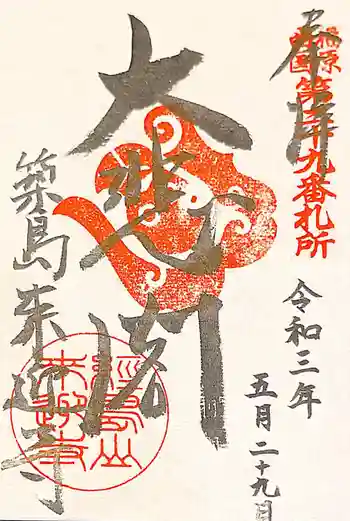 奉拝
福原
西国
第 十九番札所
令和三年
五月二十九日
大悲閣
築島来迎寺
經島山
来迎寺